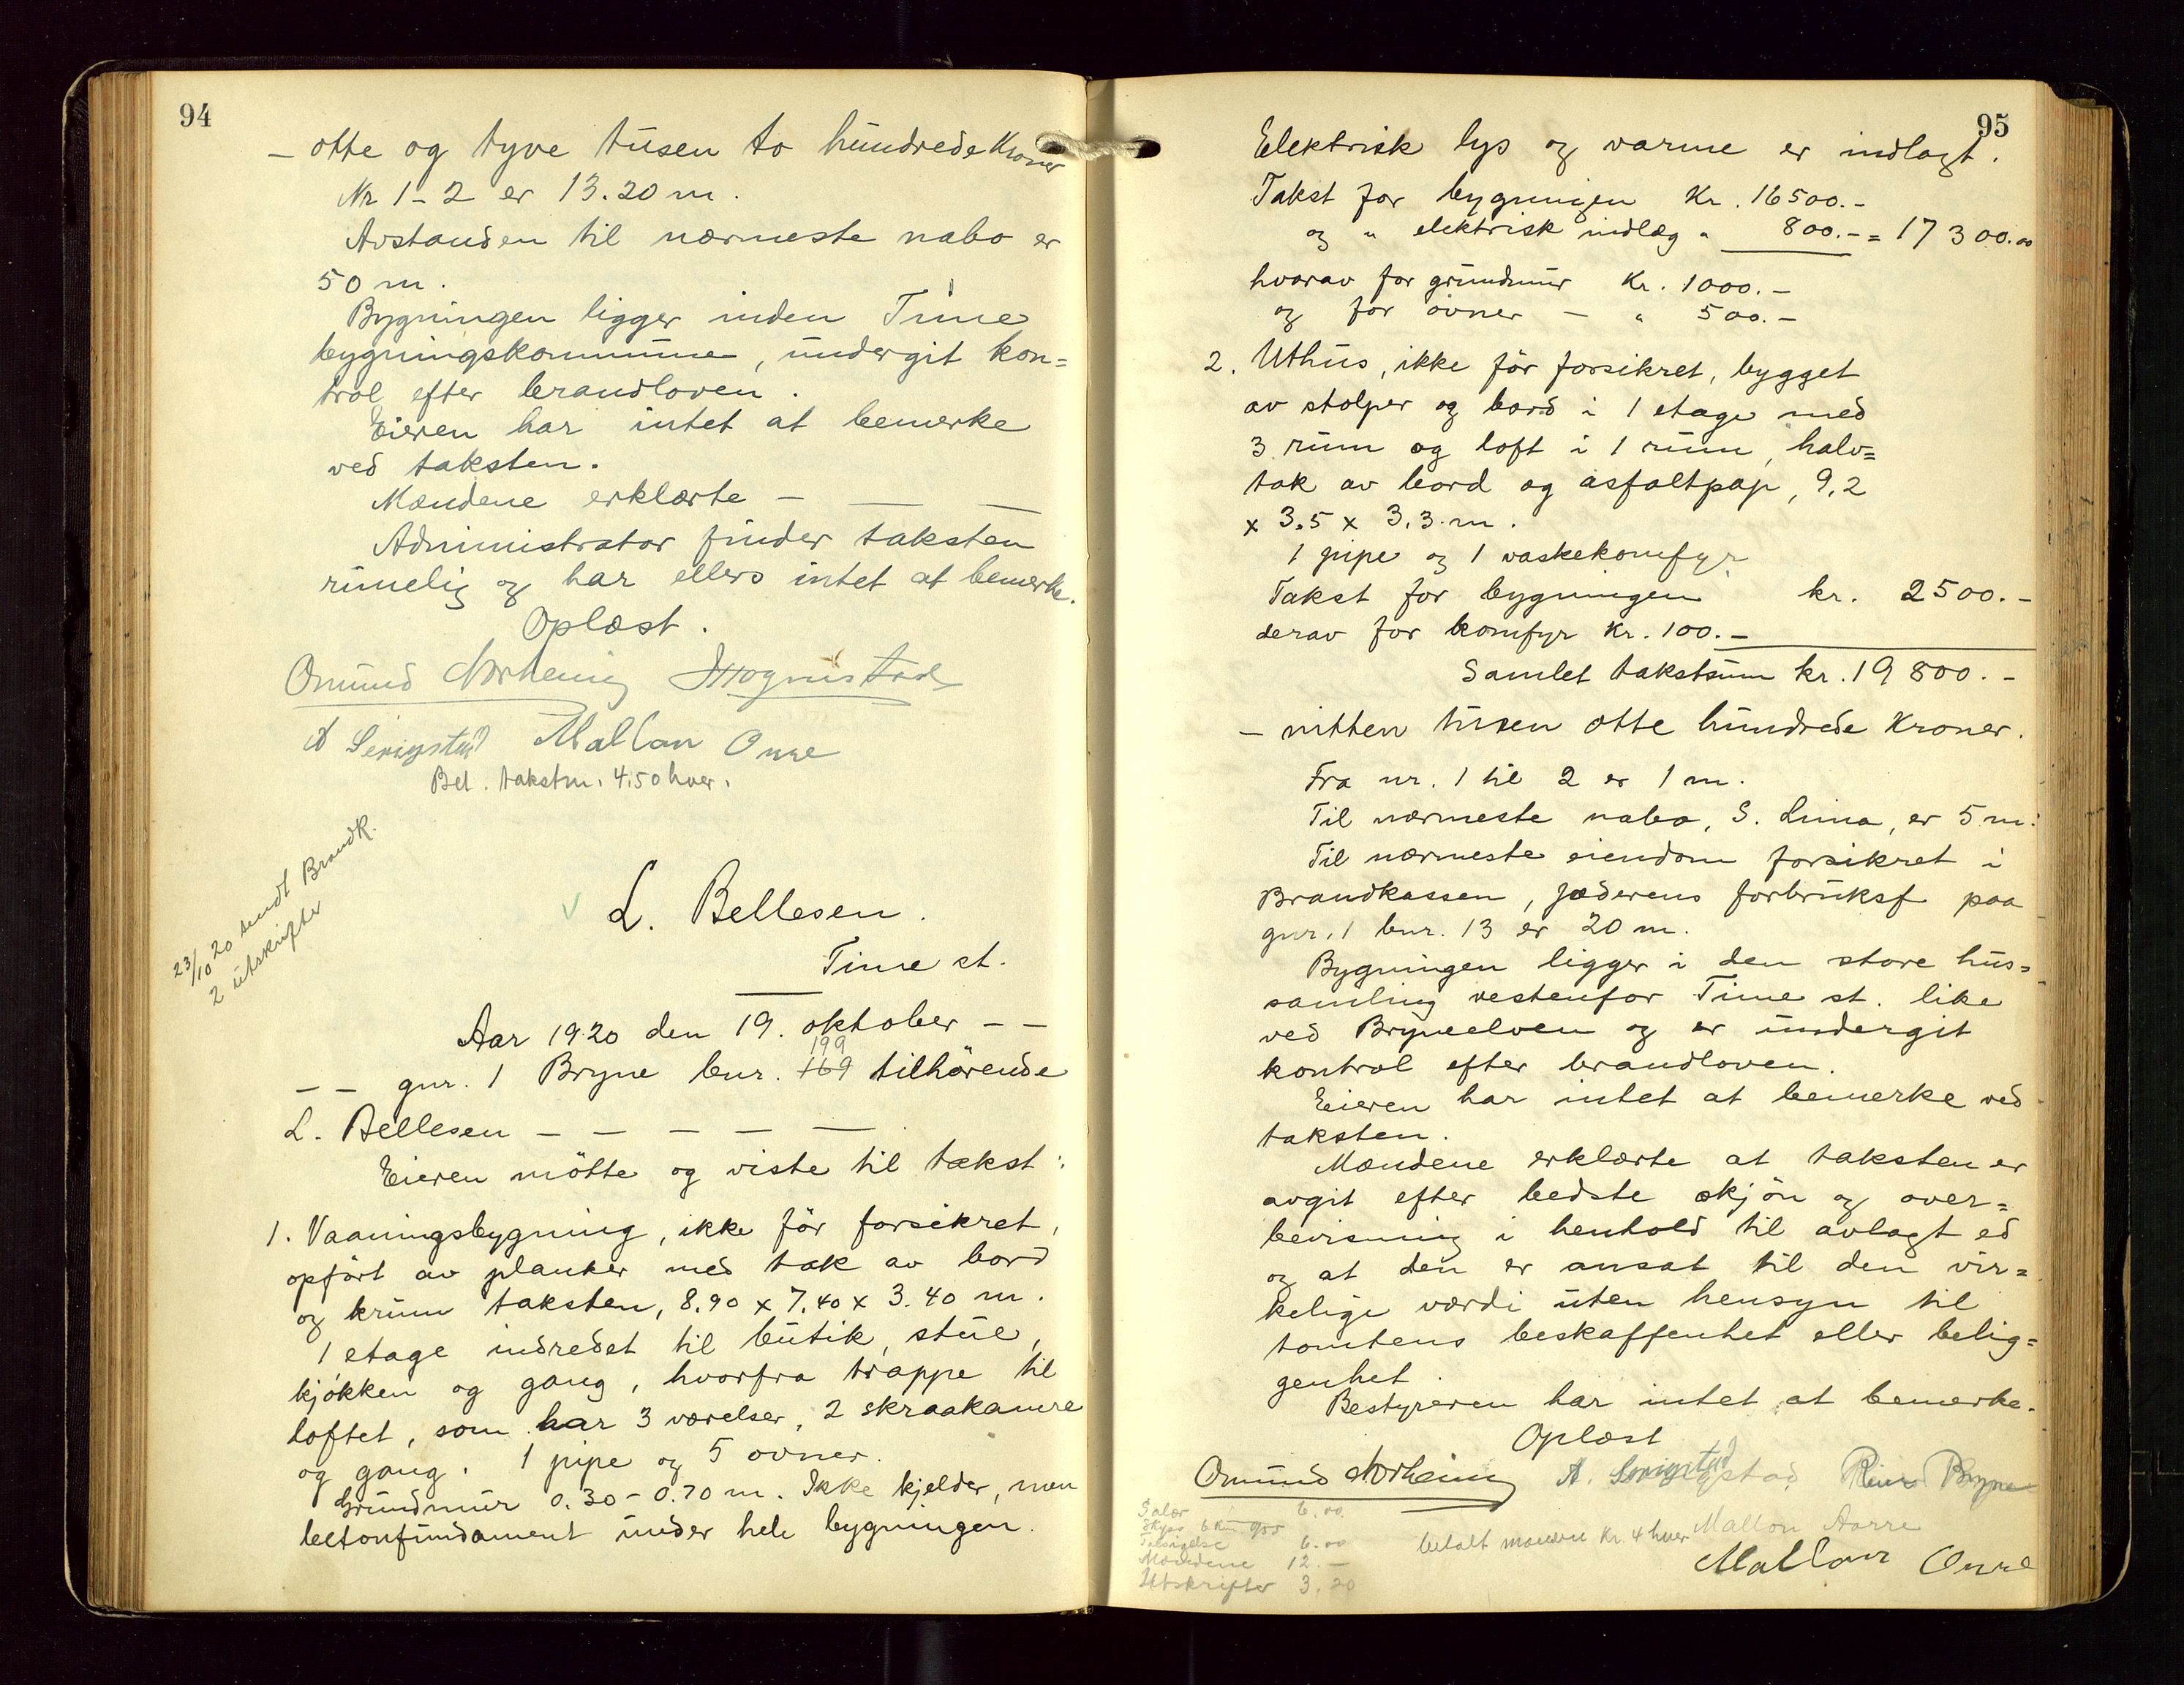 94
– otte og tyve tusen to hundrede Kroner
Nr 1-2 er 13.20 m.
Avstanden til nærmeste nabo er
50 m.
Bygningen ligger inden Time
bygningskommune, undergit kon=
trol efter brandloven.
Eieren har intet at bemerke
ved taksten.
Mændene erklærte – — —
Administrator finder taksten
rimelig og har ellers intet at bemerke.
Oplæst.
Omund Norheim
A Serigstad Mallon Orre
Bet. takstm. 4.50 hver.
23/10 20 sendt Brandk.
2 utskrifter
L. Bellesen.
Time st.
Aar 1920 den 19. oktober – –
199
– – gnr. 1 Bryne bnr. 169 tilhörende
L. Bellesen – – – – —
Eieren mötte og viste til takst:
1. Vaaningsbygning, ikke för forsikret,
opfört av planker med tak av bord
og krum taksten, 8.90 x 7.40 x 3.40 m.
1 etage indredet til butik, stue,
kjökken og gang, hvorfra trappe til
loftet, som har 3 værelser, 2 skraakamre
og gang. 1 pipe og 5 ovner.
Grundmur 0.30 – 0.70 m. Ikke kjelder, men
betonfundament under hele bygningen.
95
Elektrisk lys og varme er indlagt.
Takst for bygningen Kr. 16500.–
og " elektrisk indlæg " 800.– = 17 300.00
hvorav for grundmur Kr. 1000.–
og for ovner – " 500.–
2. Uthus, ikke för forsikret, bygget
av stolper og bord i 1 etage med
3 rum og loft i 1 rum, halv=
tak av bord og asfaltpap, 9,2
x 3.5 x 3.3 m.
1 pipe og 1 vaskekomfyr.
Takst for bygningen kr. 2500.–
derav for komfyr Kr. 100.–
Samlet takstsum kr. 19 800.–
– nitten tusen otte hundrede Kroner.
Fra nr. 1 til 2 er 1 m.
Til nærmeste nabo, S. Lima, er 5 m.
Til nærmeste eiendom forsikret i
Brandkassen, Jæderens forbruksf. paa
gnr. 1 bnr. 13 er 20 m.
Bygningen ligger i den store hus=
samling vestenfor Time st. like
ved Bryneelven og er undergit
kontrol efter brandloven.
Eieren har intet at bemerke ved
taksten.
Mændene erklærte at taksten er
avgit efter bedste skjön og over=
bevisning i henhold til avlagt ed
og at den er ansat til den vir=
kelige værdi uten hensyn til
tomtens beskaffenhet eller belig=
genhet.
Bestyreren har intet at bemerke.
Oplæst
Omund Norheim A. Serigstad Bryne
Salær 6.00
Skyss 6 km
6.00
Mallon Aarre
betalt mændene Kr. 4 hver
Mændene 12.–
Mallon Orre
Utskrifter 3.20